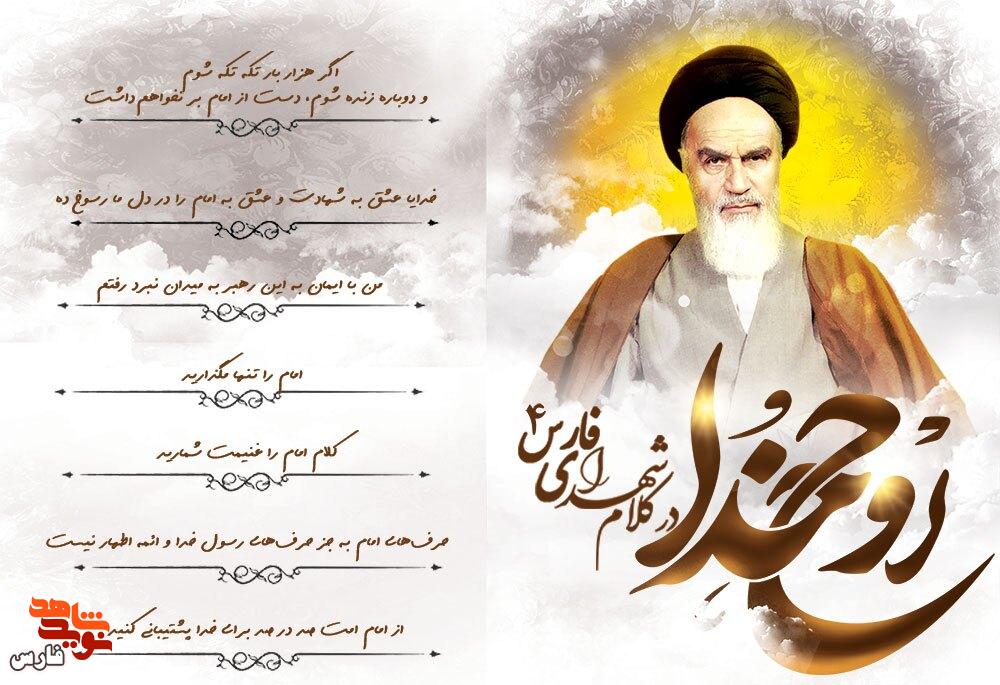 روح خدا
در کلام شهدای فارس ۴
اگر هزار بار تکه تکه شوم
و دوباره زنده شوم، دست از امام بر نخواهم داشت
خدایا عشق به شهادت و عشق به امام را در دل ما رسوخ ده
من با ایمان به این رهبر به میدان نبرد رفتم
امام را تنها مگذارید
کلام امام را غنیمت شمارید
حرف‌های امام به جز حرف‌های رسول خدا و ائمه اطهار نیست
از امام امت صد در صد برای خدا پشتیبانی کنید
نوید شاهد
فارس